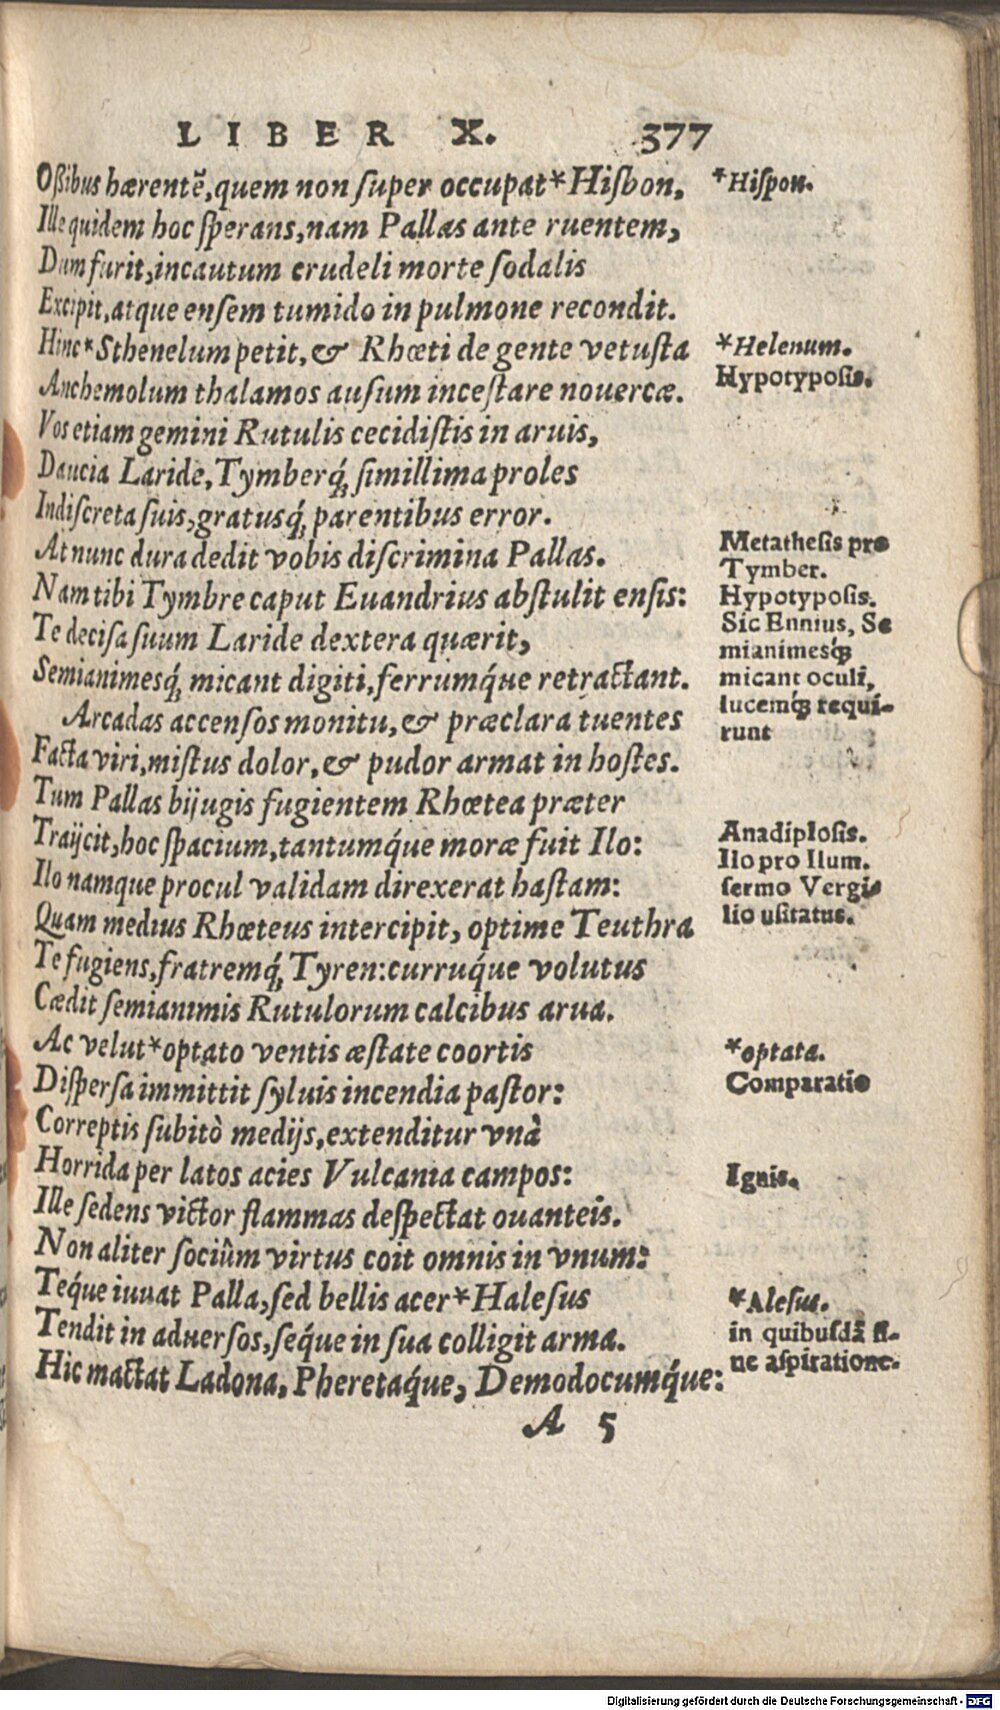 LIBER X. 377
Oßibus hærentē, quem non ſuper occupat*Hiſbon, *Hiſpon.
Ille quidem hoc ſperans, nam Pallas ante ruentem,
Dum furit, incautum crudeli morte ſodalis
Excipit, atque enſem tumido in pulmone recondit.
Hinc*Sthenelum petit, & Rhœti de gente vetuſta *Helenum.
Anchemolum thalamos auſum inceſtare nouercæ. Hypotypoſis.
Vos etiam gemini Rutulis cecidiſtis in aruis,
Daucia Laride, Tymberq́; ſimillima proles
Indiſcreta ſuis, gratusq́; parentibus error.
At nunc dura dedit vobis diſcrimina Pallas. Metatheſis pro
Tymber.
Nam tibi Tymbre caput Euandrius abſtulit enſis: Hypotypoſis.
Te deciſa ſuum Laride dextera quærit, Sic Ennius, Se
mianimesq́;
Semianimesq́; micant digiti, ferrumq́ue retractant. micant oculi,
lucemq́; requi-
Arcadas accenſos monitu, & præclara tuentes runt
Facta viri, miſtus dolor, & pudor armat in hoſtes.
Tum Pallas bijugis fugientem Rhœtea præter
Traijcit, hoc ſpacium, tantumq́ue moræ fuit Ilo: Anadiploſis.
Ilo pro Ilum.
Ilo namque procul validam direxerat haſtam: ſermo Vergi
Quam medius Rhœteus intercipit, optime Teuthra lio uſitatus.
Te fugiens, fratremq́; Tyren: curruq́ue volutus
Cædit ſemianimis Rutulorum calcibus arua.
Ac velut*optato ventis æſtate coortis *optata.
Diſperſa immittit ſyluis incendia paſtor: Comparatio
Correptis ſubitò medijs, extenditur vnà
Horrida per latos acies Vulcania campos: Ignis.
Ille ſedens victor flammas deſpectat ouanteis.
Non aliter ſociûm virtus coit omnis in vnum:
Teq́ue iuuat Palla, ſed bellis acer*Haleſus *Aleſus.
Tendit in aduerſos, ſeq́ue in ſua colligit arma. in quibuſdā ſi-
Hic mactat Ladona, Pheretaq́ue, Demodocumq́ue: ne aſpiratione.
A 5
Digitalisierung gefördert durch die Deutsche Forschungsgemeinschaft - DFG